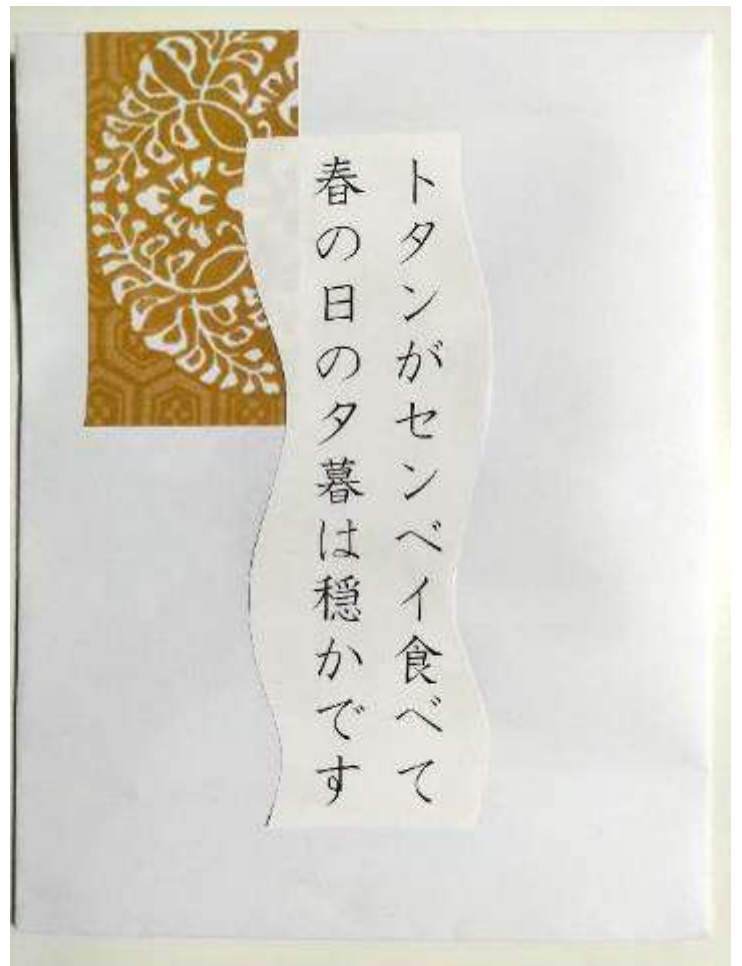 トタンがセンベイ食べて
春の日の夕暮は穏かです